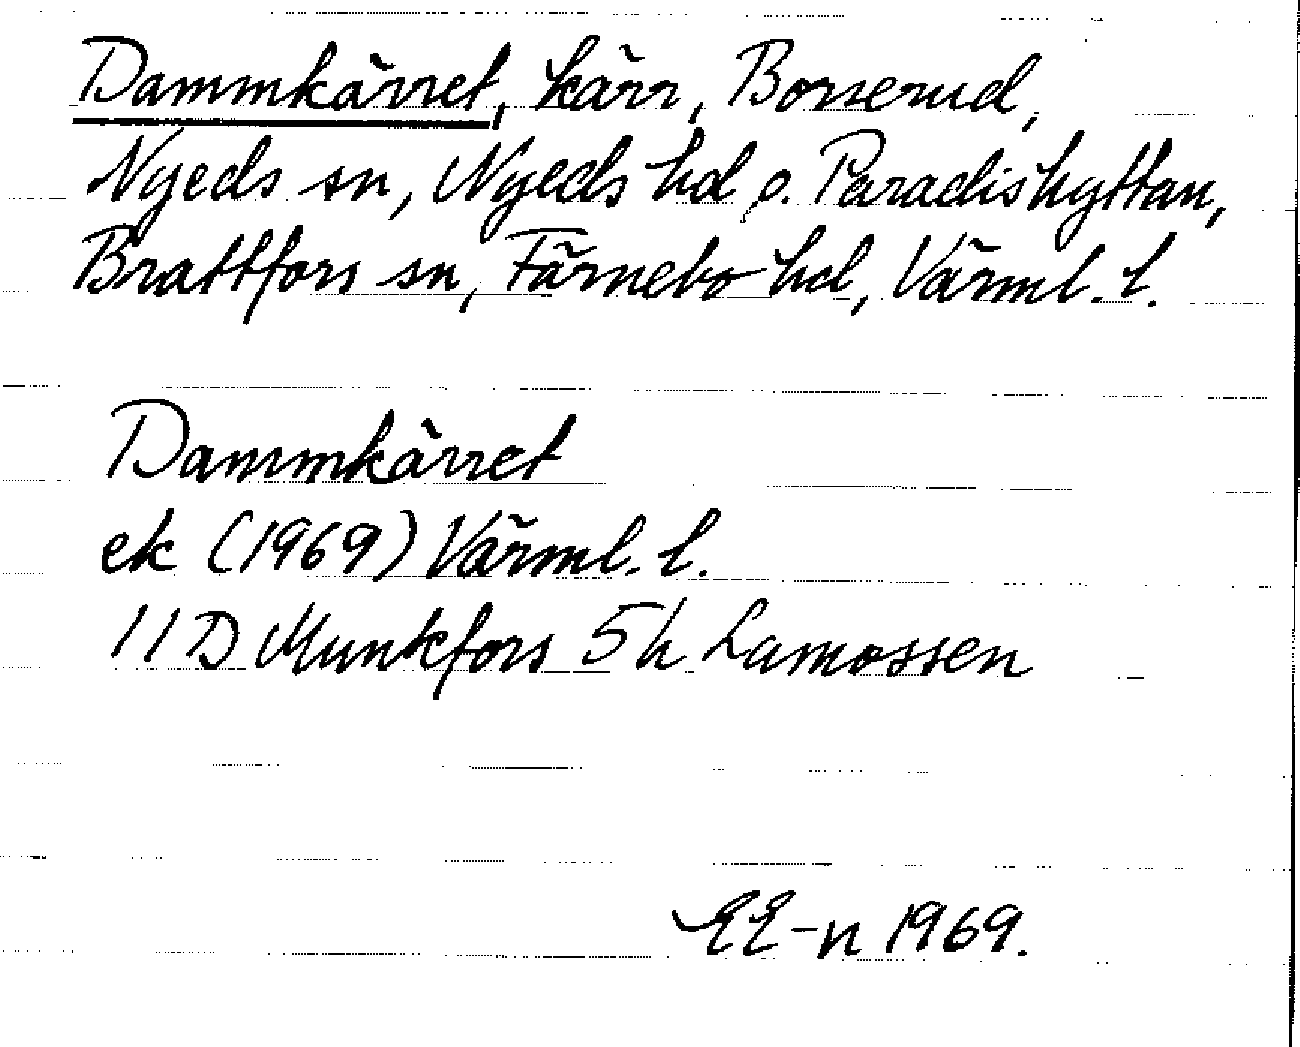 Dammkärret, kärr, Borserud,
Nyeds sn, Nyeds hd o. Paradishyttan,
Brattfors sn, Färnebo hd, Värml. l.
Dammkärret
ek (1969) Värml. l.
11 D Munkfors 5 h Lamossen
EE-n 1969.